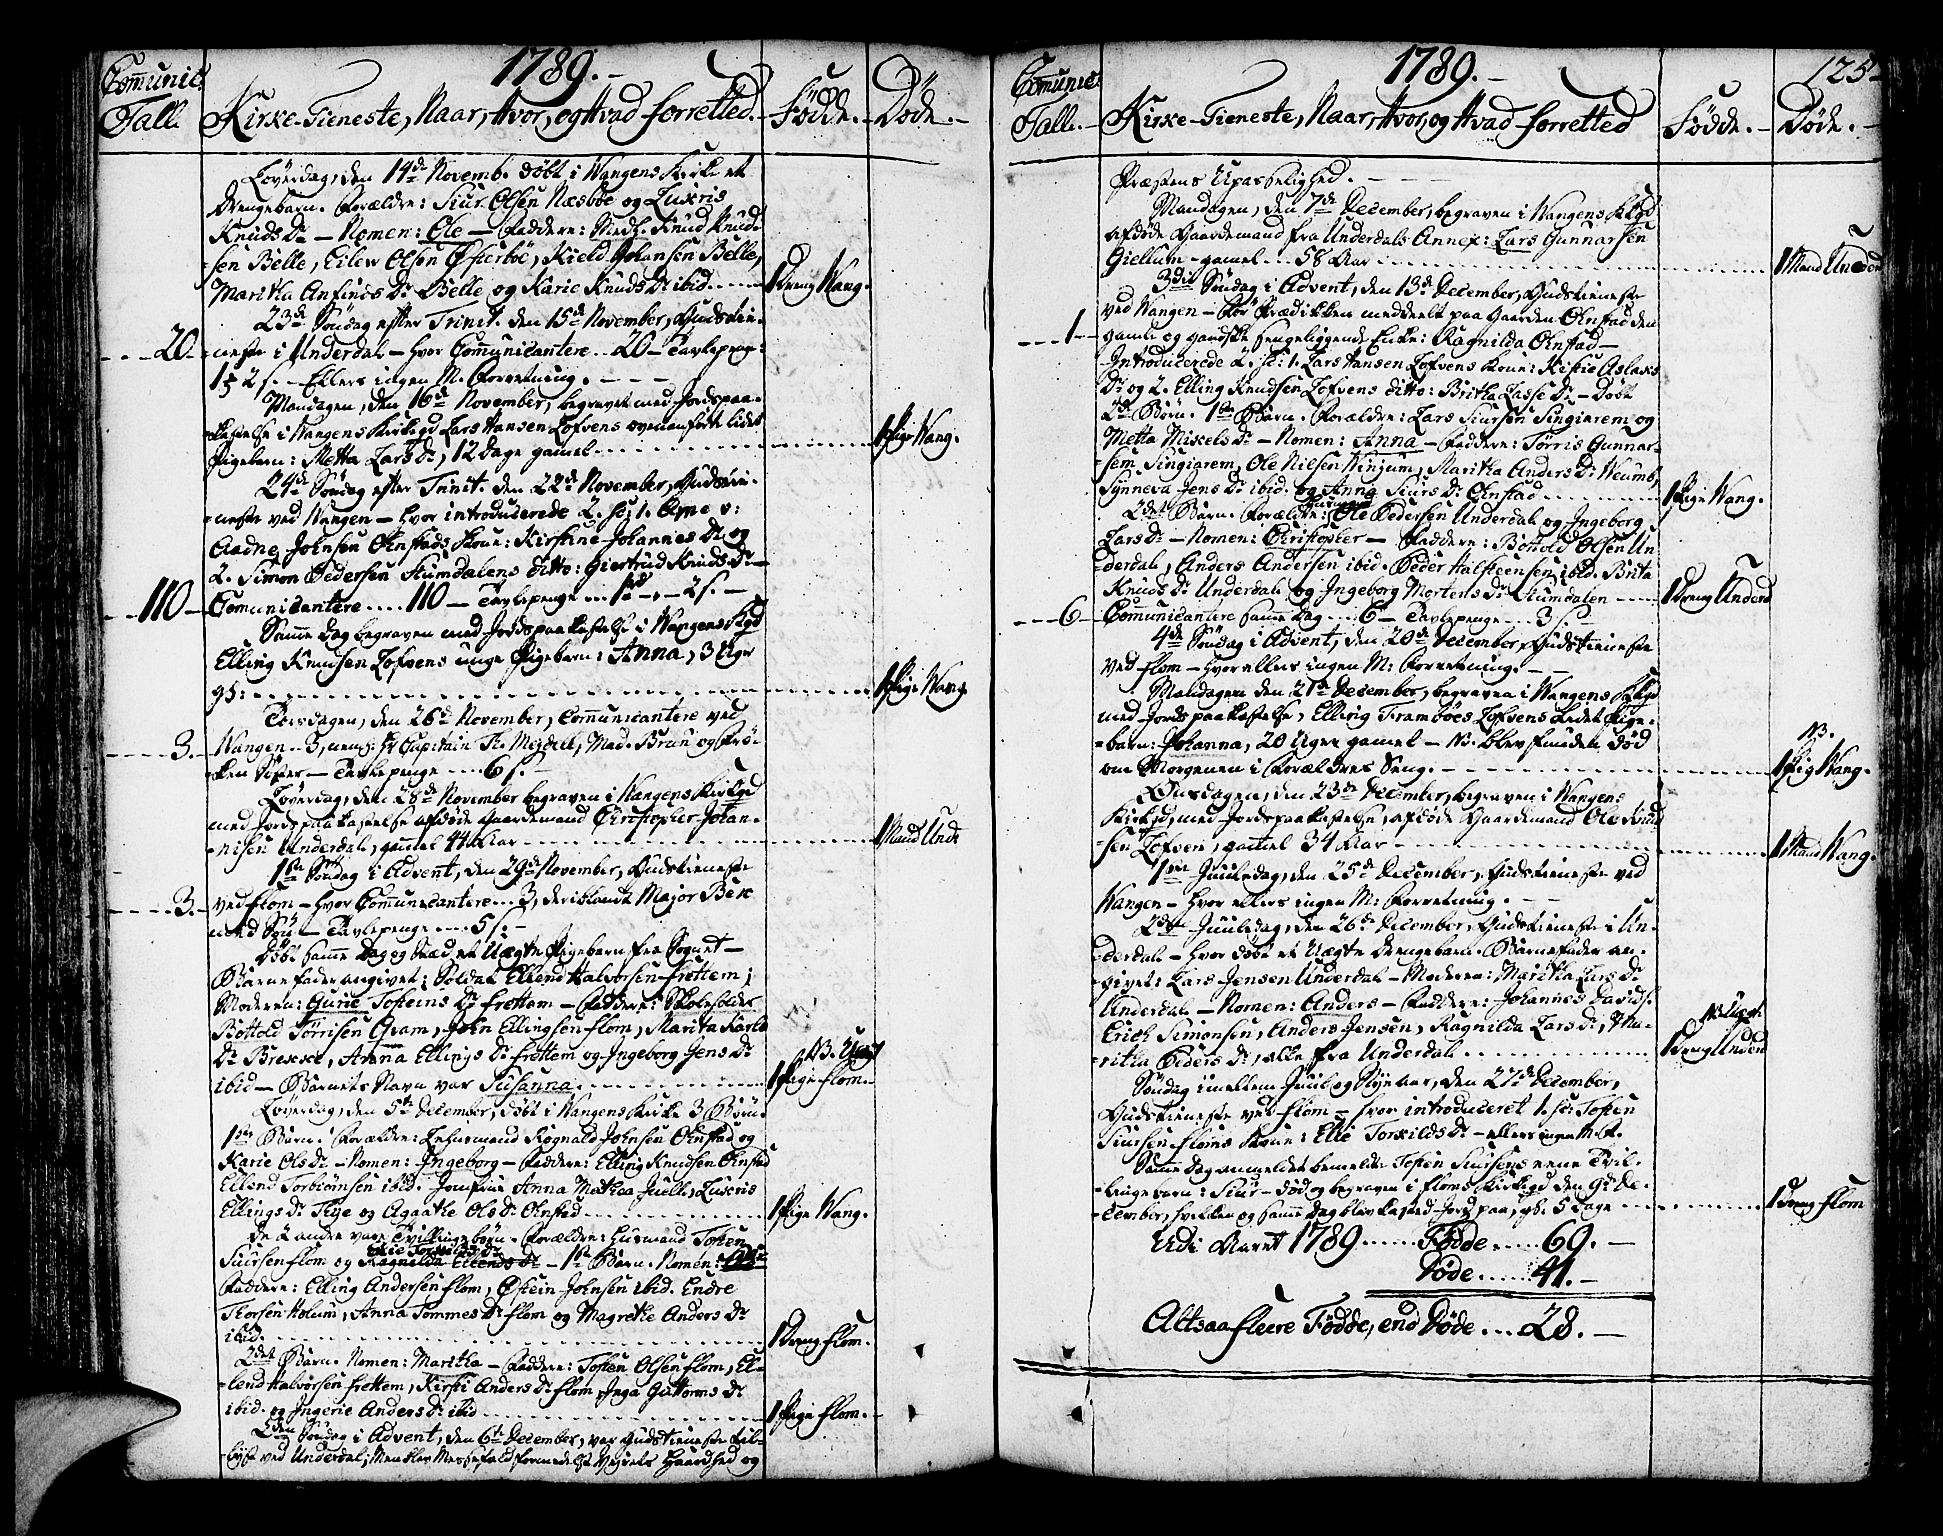 1789.
Comunic: Tall. Kirke-Tieneste, Naar, Hvor, og Hvad forretted. Fødde. Døde.
Løverdag, den 14de Novemb. døbt i Wangens Kirke et
Drengebarn. Forældre: Siur Olsen Næsböe og
Knuds Dr — Nomen: Ole — Faddere: Medh. Knud Knud-
sen Belle, Eilev Olsen Østerböe, Kield Johansen Belle,
Maritha Anfinds Dr Belle og Karie Knuds Dr ibid. 1 Dreng Wang.
23de Søndag efter Trinit. den 15de November, Gudstie-
20 neste i Underdal — hvor Communicantere 20 — Tavlepenge:
2 s. — Ellers ingen M. Forretning.
Mandagen, den 16de November, begravet med Jordspaa-
kastelse i Wangens Kirkegd Lars Hansen Lofvens ovenanførte lidet
Pigebarn: Metta Lars Dr, 12 Dage gamel 1 Pige Wang.
24de Søndag efter Trinit. den 22de November, Gudstie-
neste ved Wangen — hvor introducerede 2. sc: 1.
Aadne Johnsen Ohnstads Kone: Kirstine Johannes Dr og
2. Simon Pedersen Stumdalens ditto: Giertrud Knuds Dr —
110 Comunicantere 110 — Tavlepenge 2 s. —
Samme Dag begraven med Jordspaakastelse i Wangens Kgd
Elling Knudsen Lofvens unge Pigebarn: Anna, 3 Uger
gs: 1 Pige Wang.
Torsdagen, den 26de November, Communicantere ved
3. Wangen 3, neml: Hr Capitain Th. Meydell, Mad. Bruun og Frö-
ken — Tavlepenge 6 s. —
Løverdag, den 28de November begraven i Wangens Kirkegd
med Jordspaakastelse afdøde Gaardemand Christopher Johan-
nisen Underdal, gamel 44 Aar 1 Mand Und.
1ste Søndag i Advent, den 29de November, Gudstieneste
3. ved Flom — hvor Communicantere 3, deriblandt Major
med Søn — Tavlepenge 5 s. —
Døbt samme Dag og Sted et Uægte Pigebarn fra Sognet —
Barnefader angivet: Soldat Ellend Halvorsen Frettem;
Moderen: Gurie Tosteins Dr Frettem — Faddere: Skoleholder
Bottold Törrisen Gram, John Ellingsen Flom, Marita
Dr Brekke, Anna Ellings Dr Frettem og Ingeborg Jens Dr NB. Uægt
ibid — Barnets Navn var Susanna. 1 Pige Flom.
Løverdag, den 5te December, døbt i Wangens Kirke 3 Børn.
1ste Barn. Forældre: Lehnsmand Rognald Johnsen Ohnstad og
Karie Ols Dr — Nomen: Ingeborg — Faddere: Elling Knudsen Ohnstad
Ellend Torbiörnsen ibid. Jomfrue Anna Mathea Juell,
Ellings Dr og Agaathe Ols Dr Ohnstad 1 Pige Wang.
De 2 andre vare Tvillingebørn. Forældre: Husmand Tosten
Elie Torkilds Dr
Siursen Flom og Ragnilda Ellends Dr — 1ste Barn. Nomen:
Faddere: Elling Andersen Flom, Östein Johnsen ibid. Endre
Thorsen Holum, Anna Tommes Dr Flom og Magrethe Anders Dr
ibid. 1 Dreng Flom.
2det Barn. Nomen: Maritha — Faddere: Tosten Olsen Flom, El-
lend Halvorsen Frettem, Kirsti Anders Dr Flom, Inga Guttorms Dr
ibid. og Ingerie Anders Dr ibid 1 Pige Flom.
2den Søndag i Advent, den 6te December, var Gudstieneste til-
lyst ved Underdal; Men blev Messefald formedelst Vejrets Haardhed og
1789. 125
Comunic: Tall. Kirke-Tieneste, Naar, Hvor, og Hvad forretted Fødde. Døde.
Præstens Upasselighed.
Mandagen, den 7de December, begraven i Wangens Kkgd
afdøde Gaardemand fra Underdals Annex: Lars Gunnarsen
Giellum — gamel 58 Aar 1 Mand Underd
3die Søndag i Advent, den 13de December, Gudstieneste
ved Wangen — Før Prædikken meddeelt paa Gaarden Ohnstad den
1 gamle og gandske sengeliggende Enke: Ragnilda Ohnstad —
Introducerede 2. sc: 1. Lars Hansen Lofvens Kone: Kistie Aslaks
Dr og 2. Elling Knudsen Lofvens ditto: Britha Lasse Dr — Døbt
2de Børn. 1ste Barn. Forældre: Lars Siursen Singiarem og
Metta Mikels Dr — Nomen: Anna — Faddere: Törris Gunnar-
sen Singiarem, Ole Nilsen Winjum, Maritha Anders Dr
Synneva Jens Dr ibid. og Anna Siurs Dr Ohnstad 1 Pige Wang.
2det Barn. Forældre: Ole Pedersen Underdal og Ingeborg
Lars Dr — Nomen: Christopher — Faddere: Bottold Olsen Un-
derdal, Anders Andersen ibid. Peder Halsteensen ibid. Brita
Knuds Dr Underdal og Ingeborg Mortens Dr Stumdalen 1 Dreng Underd
6 Communicantere samme Dag 6 — Tavlepenge 3 s. —
4de Søndag i Advent, den 20de December, Gudstieneste
ved Flom — hvor ellers ingen M: Forretning.
Mandagen den 21de December, begraven i Wangens Kkgd
med Jordspaakastelse, Elling Lofvens lidet Pige-
barn: Johanna, 20 Uger gamel — NB. blev funden død NB.
om Morgenen i Forældres Seng. 1 Pig Wang.
Onsdagen, den 23de December, begraven i Wangens
Kirkgd, med Jordspaakastelse, afdøde Gaardemand Ole Knud-
sen Lofven, gamel 34 Aar 1 Mand Wang.
1ste Juuledag, den 25de December, Gudstieneste ved
Wangen — hvor ellers ingen M: Forretning.
2den Juuledag, den 26de December, Gudstieneste i Un-
derdal — hvor døbt et Uægte Drengebarn. Barnefader an-
givet: Lars Jensen Underdal — Moderen: Maritha Lars Dr
Underdal — Nomen: Anders — Faddere: Johannes Davids.
Erich Simonsen, Anders Jensen, Ragnilda Lars Dr, Ma- NB. Uægt
ritha Peders Dr, alle fra Underdal 1 Dreng Underd
Søndag imellem Juul og Nyeaar, den 27de December,
Gudstieneste ved Flom — hvor introduceret 1. sc: Tosten
Siursen Floms Kone: Elie Torkilds Dr — ellers ingen M. F.
Samme Dag anmeldet bemeldte Tosten Siursens eene Tvil-
lingebarn: Siur — død og begraven i Floms Kirkegd den 9de De-
cember, hvilken og samme Dag blev kasted Jord paa, gl. 5 Dage 1 Dreng Flom
Udi Aaret 1789 Fødde 69.
Døde 41.
Altsaa fleere Fødde, end Døde 28.